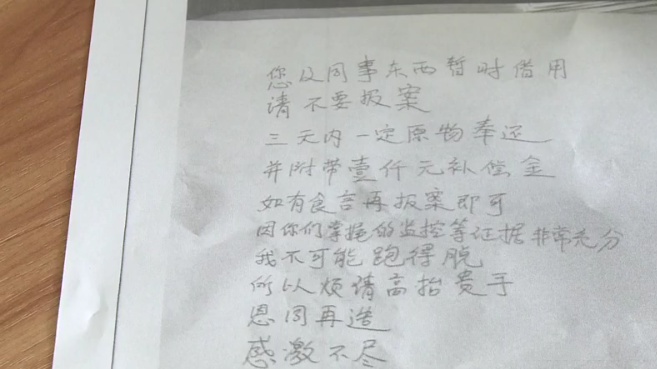 您及同事东西暂时借用
请不要报案
三天内一定原物奉还
并附带壹仟元补偿金
如有食言再报案即可
因你们掌握的监控等证据非常充分
我不可能跑得脱
所以烦请高抬贵手
恩同再造
感激不尽